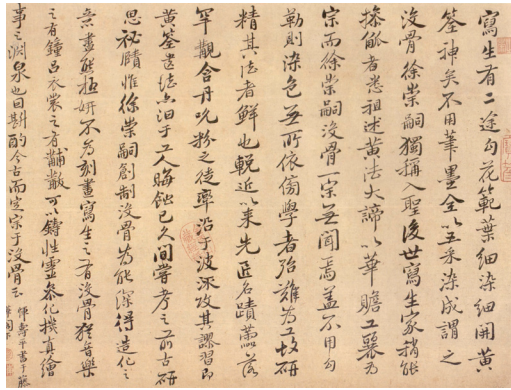 寫生有二途勾花範葉細染細開黄
筌神矣不用筆墨全以五采染成謂之
沒骨徐崇嗣獨稱入聖後世寫生家稍能
操觚者悉祖述黄法大諦以華贍工麗為
宗而徐崇嗣沒骨一宗無聞焉蓋不用勾
勒則染色無所依傍學者殆難為工故研
精其法者鮮也輓近以來先匠名蹟蕩落
罕觀含丹吮粉之徒率沿于波承攻其謬習即
黄筌遺法亦汩于工人晦蝕已久間嘗考之前古研
思祕賾惟徐崇嗣創制沒骨為能深得造化之
意盡態極妍不為刻畫寫生之有沒骨猶音樂
之有鐘呂衣裳之有黼黻可以鑄性靈參化撰真繪
事之淵泉也因斟酌今古而定宗于沒骨云
惲壽平書于